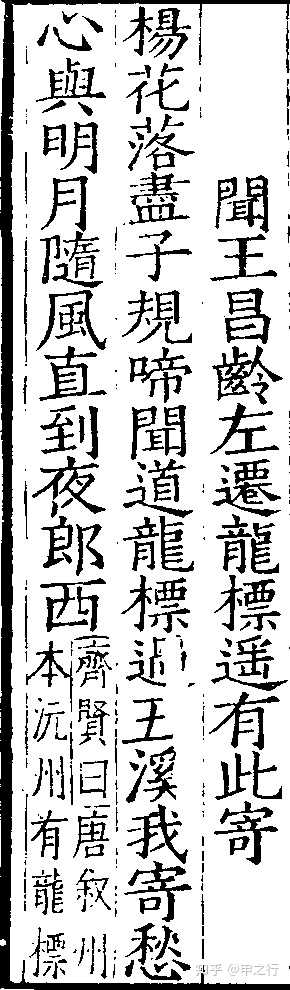 聞王昌齡左遷龍標遥有此寄
楊花落盡子規啼聞道龍標過王溪我寄愁
心與明月隨風直到夜郎西
齊賢曰唐叙州
本沅州有龍標
知乎